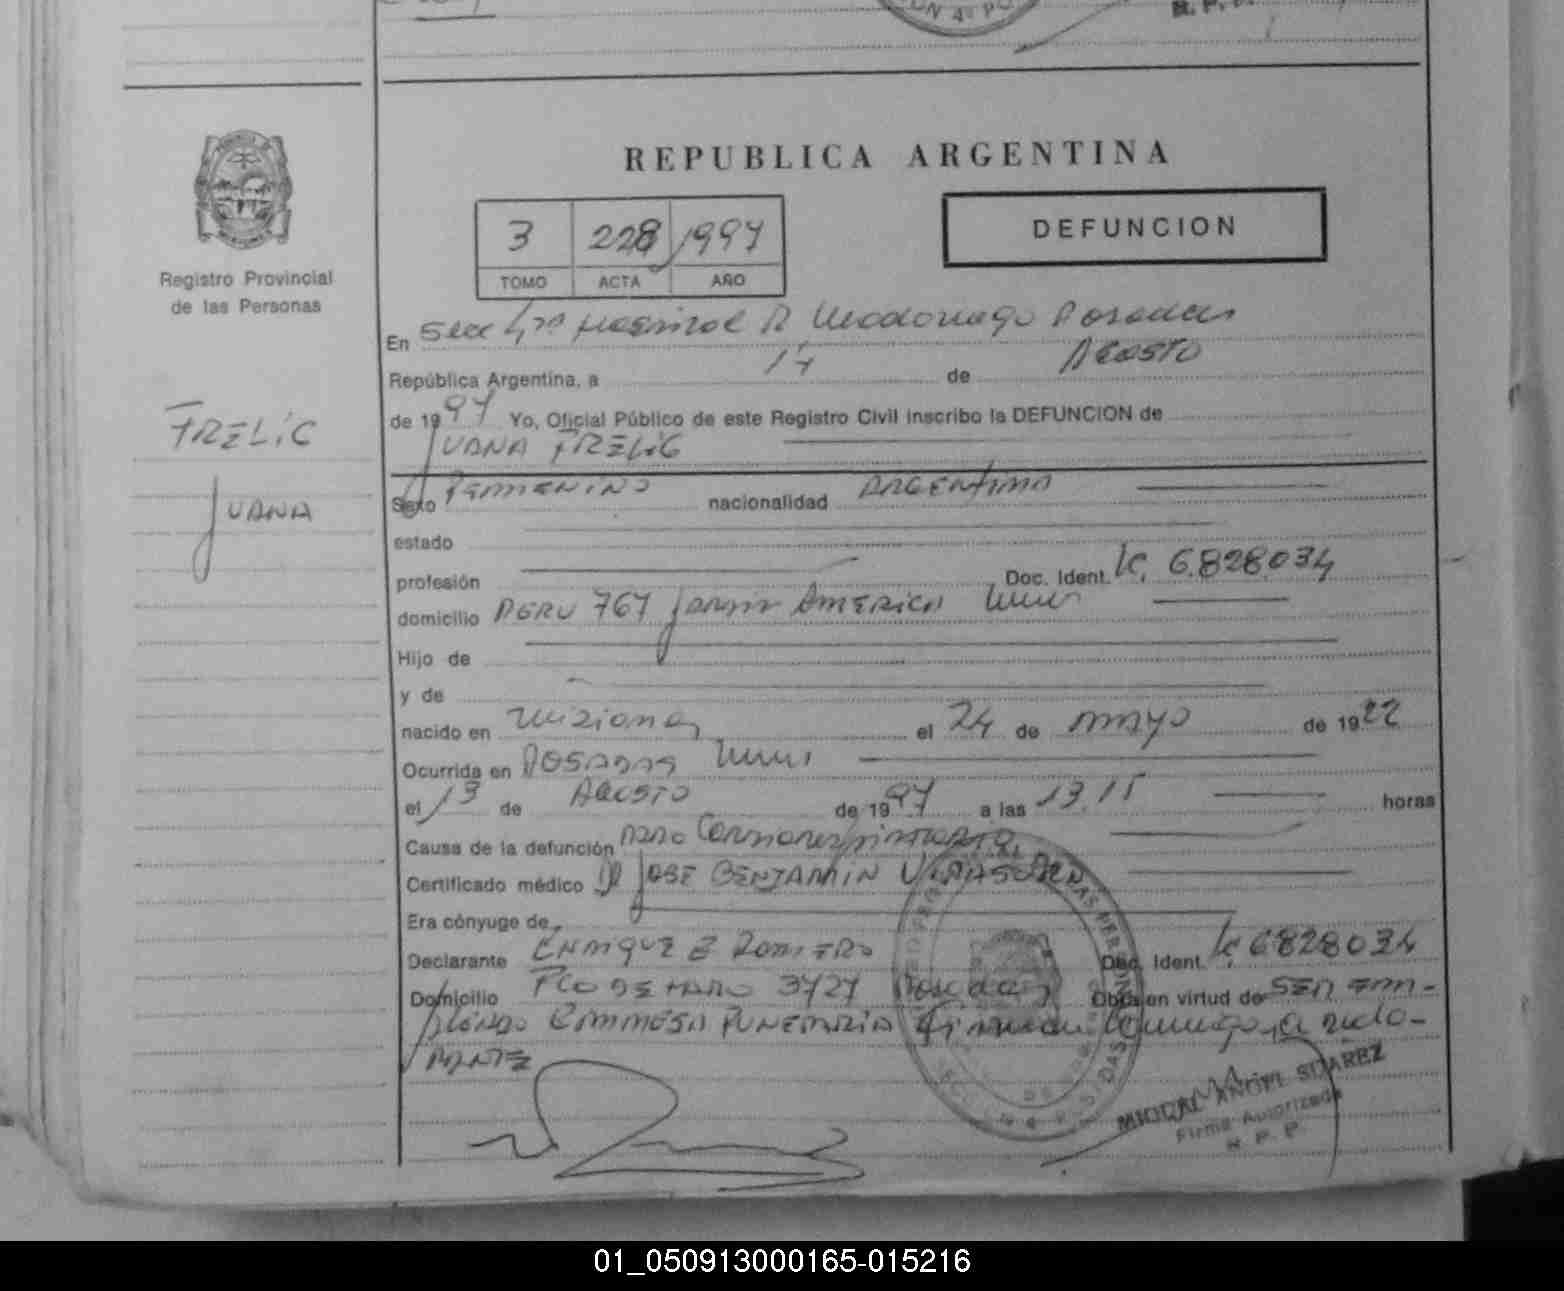 REPUBLICA ARGENTINA
3 228 1997
TOMO ACTA AÑO
DEFUNCION
Registro Provincial
de las Personas
FRELIC
JUANA
En Secc 4ta Hospital R Madariaga Posadas
República Argentina, a 14 de AGOSTO
de 1997 Yo, Oficial Público de este Registro Civil inscribo la DEFUNCION de
JUANA FRELIC
Sexo FEMENINO nacionalidad ARGENTINA
estado
profesión Doc. Ident. Lc. 6.828.034
domicilio PERU 767 Jardin AMERICA Mnes
Hijo de
y de
nacido en Misiones el 24 de mayo de 1922
Ocurrida en POSADAS Mnes
el 13 de AGOSTO de 1997 a las 13.15 horas
Causa de la defunción PARO Cardiorespiratorio
Certificado médico Dr JOSE BENJAMIN
Era cónyuge de
Declarante ENRIQUE E ROMERO Doc. Ident. Lc 6828034
Domicilio 3727 Posadas Obra en virtud de SER EM-
PLEADO EMPRESA FUNERARIA Firman Conmigo, el decla-
RANTE
MIGUEL ANGEL SUAREZ
Firma Autorizada
R. P. P.
01_050913000165-015216